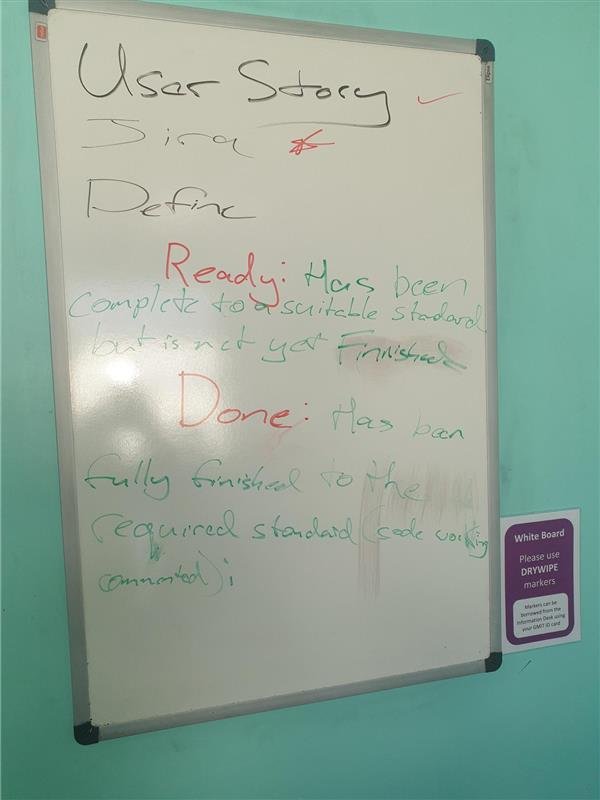 User Story
Jira
Define
Ready: Has been
complete to a suitable standard
but is not yet Finnished
Done: Has been
fully finished to the
required standard (code working
commented);
White Board
Please use
DRYWIPE
markers
Markers can be
borrowed from the
Information Desk using
your GMIT ID card